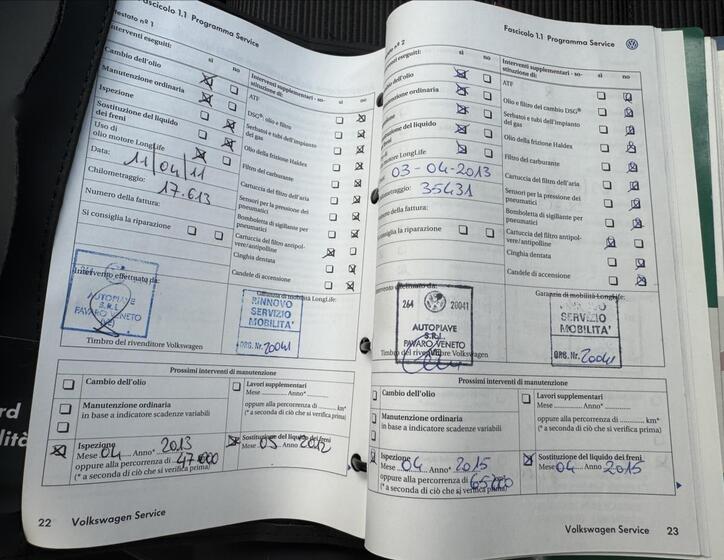 Fascicolo 1.1 Programma Service
testato nº 1
Interventi eseguiti:
sì no
Interventi supplementari - so-
stituzione di:
sì no
Cambio dell'olio
Manutenzione ordinaria
Ispezione
Sostituzione del liquido
dei freni
Uso di
olio motore LongLife
Data: 11/04/11
Chilometraggio: 17.613
Numero della fattura:
Si consiglia la riparazione
ATF
DSG®: olio e filtro
Serbatoi e tubi dell'impianto
del gas
Olio della frizione Haldex
Filtro del carburante
Cartuccia del filtro dell'aria
Sensori per la pressione dei
pneumatici
Bomboletta di sigillante per
pneumatici
Cartuccia del filtro antipol-
vere/antipolline
Cinghia dentata
Candele di accensione
Intervento effettuato da:
AUTOPIAVE
S.R.L.
FAVARO VENETO
(VE)
Timbro del rivenditore Volkswagen
Garanzia di mobilità LongLife:
RINNOVO
SERVIZIO
MOBILITA'
ORG. Nr. 20041
Prossimi interventi di manutenzione
Cambio dell'olio
Manutenzione ordinaria
in base a indicatore scadenze variabili
Lavori supplementari
Mese ........... Anno*...........
oppure alla percorrenza di ........... km*
(* a seconda di ciò che si verifica prima)
Ispezione
Mese 04 Anno* 2013
oppure alla percorrenza di 47000
(* a seconda di ciò che si verifica prima)
Sostituzione del liquido dei freni
Mese 05 Anno 2012
22 Volkswagen Service
Fascicolo 1.1 Programma Service
nº 2
sì no
sì no
Interventi supplementari - so-
stituzione di:
dell'olio
ordinaria
del liquido
LongLife
03-04-2013
35431
della fattura:
consiglia la riparazione
ATF
Olio e filtro del cambio DSG®
Serbatoi e tubi dell'impianto
del gas
Olio della frizione Haldex
Filtro del carburante
Cartuccia del filtro dell'aria
Sensori per la pressione dei
pneumatici
Bomboletta di sigillante per
pneumatici
Cartuccia del filtro antipol-
vere/antipolline
Cinghia dentata
Candele di accensione
effettuato da:
264 20041
AUTOPIAVE
S.R.L.
FAVARO VENETO
(VE)
Timbro del rivenditore Volkswagen
Garanzia di mobilità LongLife:
SERVIZIO
MOBILITA'
ORG. Nr. 20041
Prossimi interventi di manutenzione
Cambio dell'olio
Manutenzione ordinaria
in base a indicatore scadenze variabili
Lavori supplementari
Mese ........... Anno*...........
oppure alla percorrenza di ........... km*
(* a seconda di ciò che si verifica prima)
Ispezione
Mese 04 Anno* 2015
oppure alla percorrenza di 65000
(* a seconda di ciò che si verifica prima)
Sostituzione del liquido dei freni
Mese 04 Anno 2015
Volkswagen Service 23